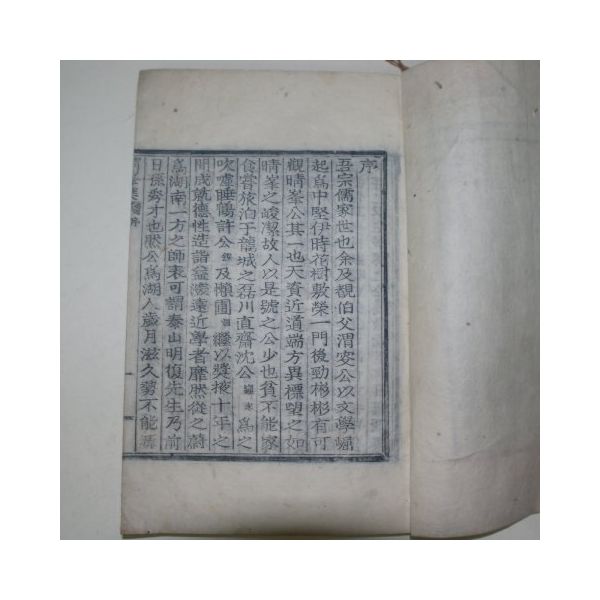 序
吾宗儒家世也余及覩伯父渭安公以文學崛
起爲中堅伊時花樹敷榮一門後勁彬彬有可
觀晴峯公其一也天資近道端方異標望之如
晴峯之峻潔故人以是號之公少也貧不能家
食嘗旅泊于龍城之磊川直齋沈公 爲之
吹噓睡鶴許公 及懶圃 繼以奬掖十年之
間成就德性造詣益深遠近學者靡然從之蔚
爲湖南一方之師表可謂泰山明復先生乃前
日孫秀才也然公爲湖人歲月滋久勢不能